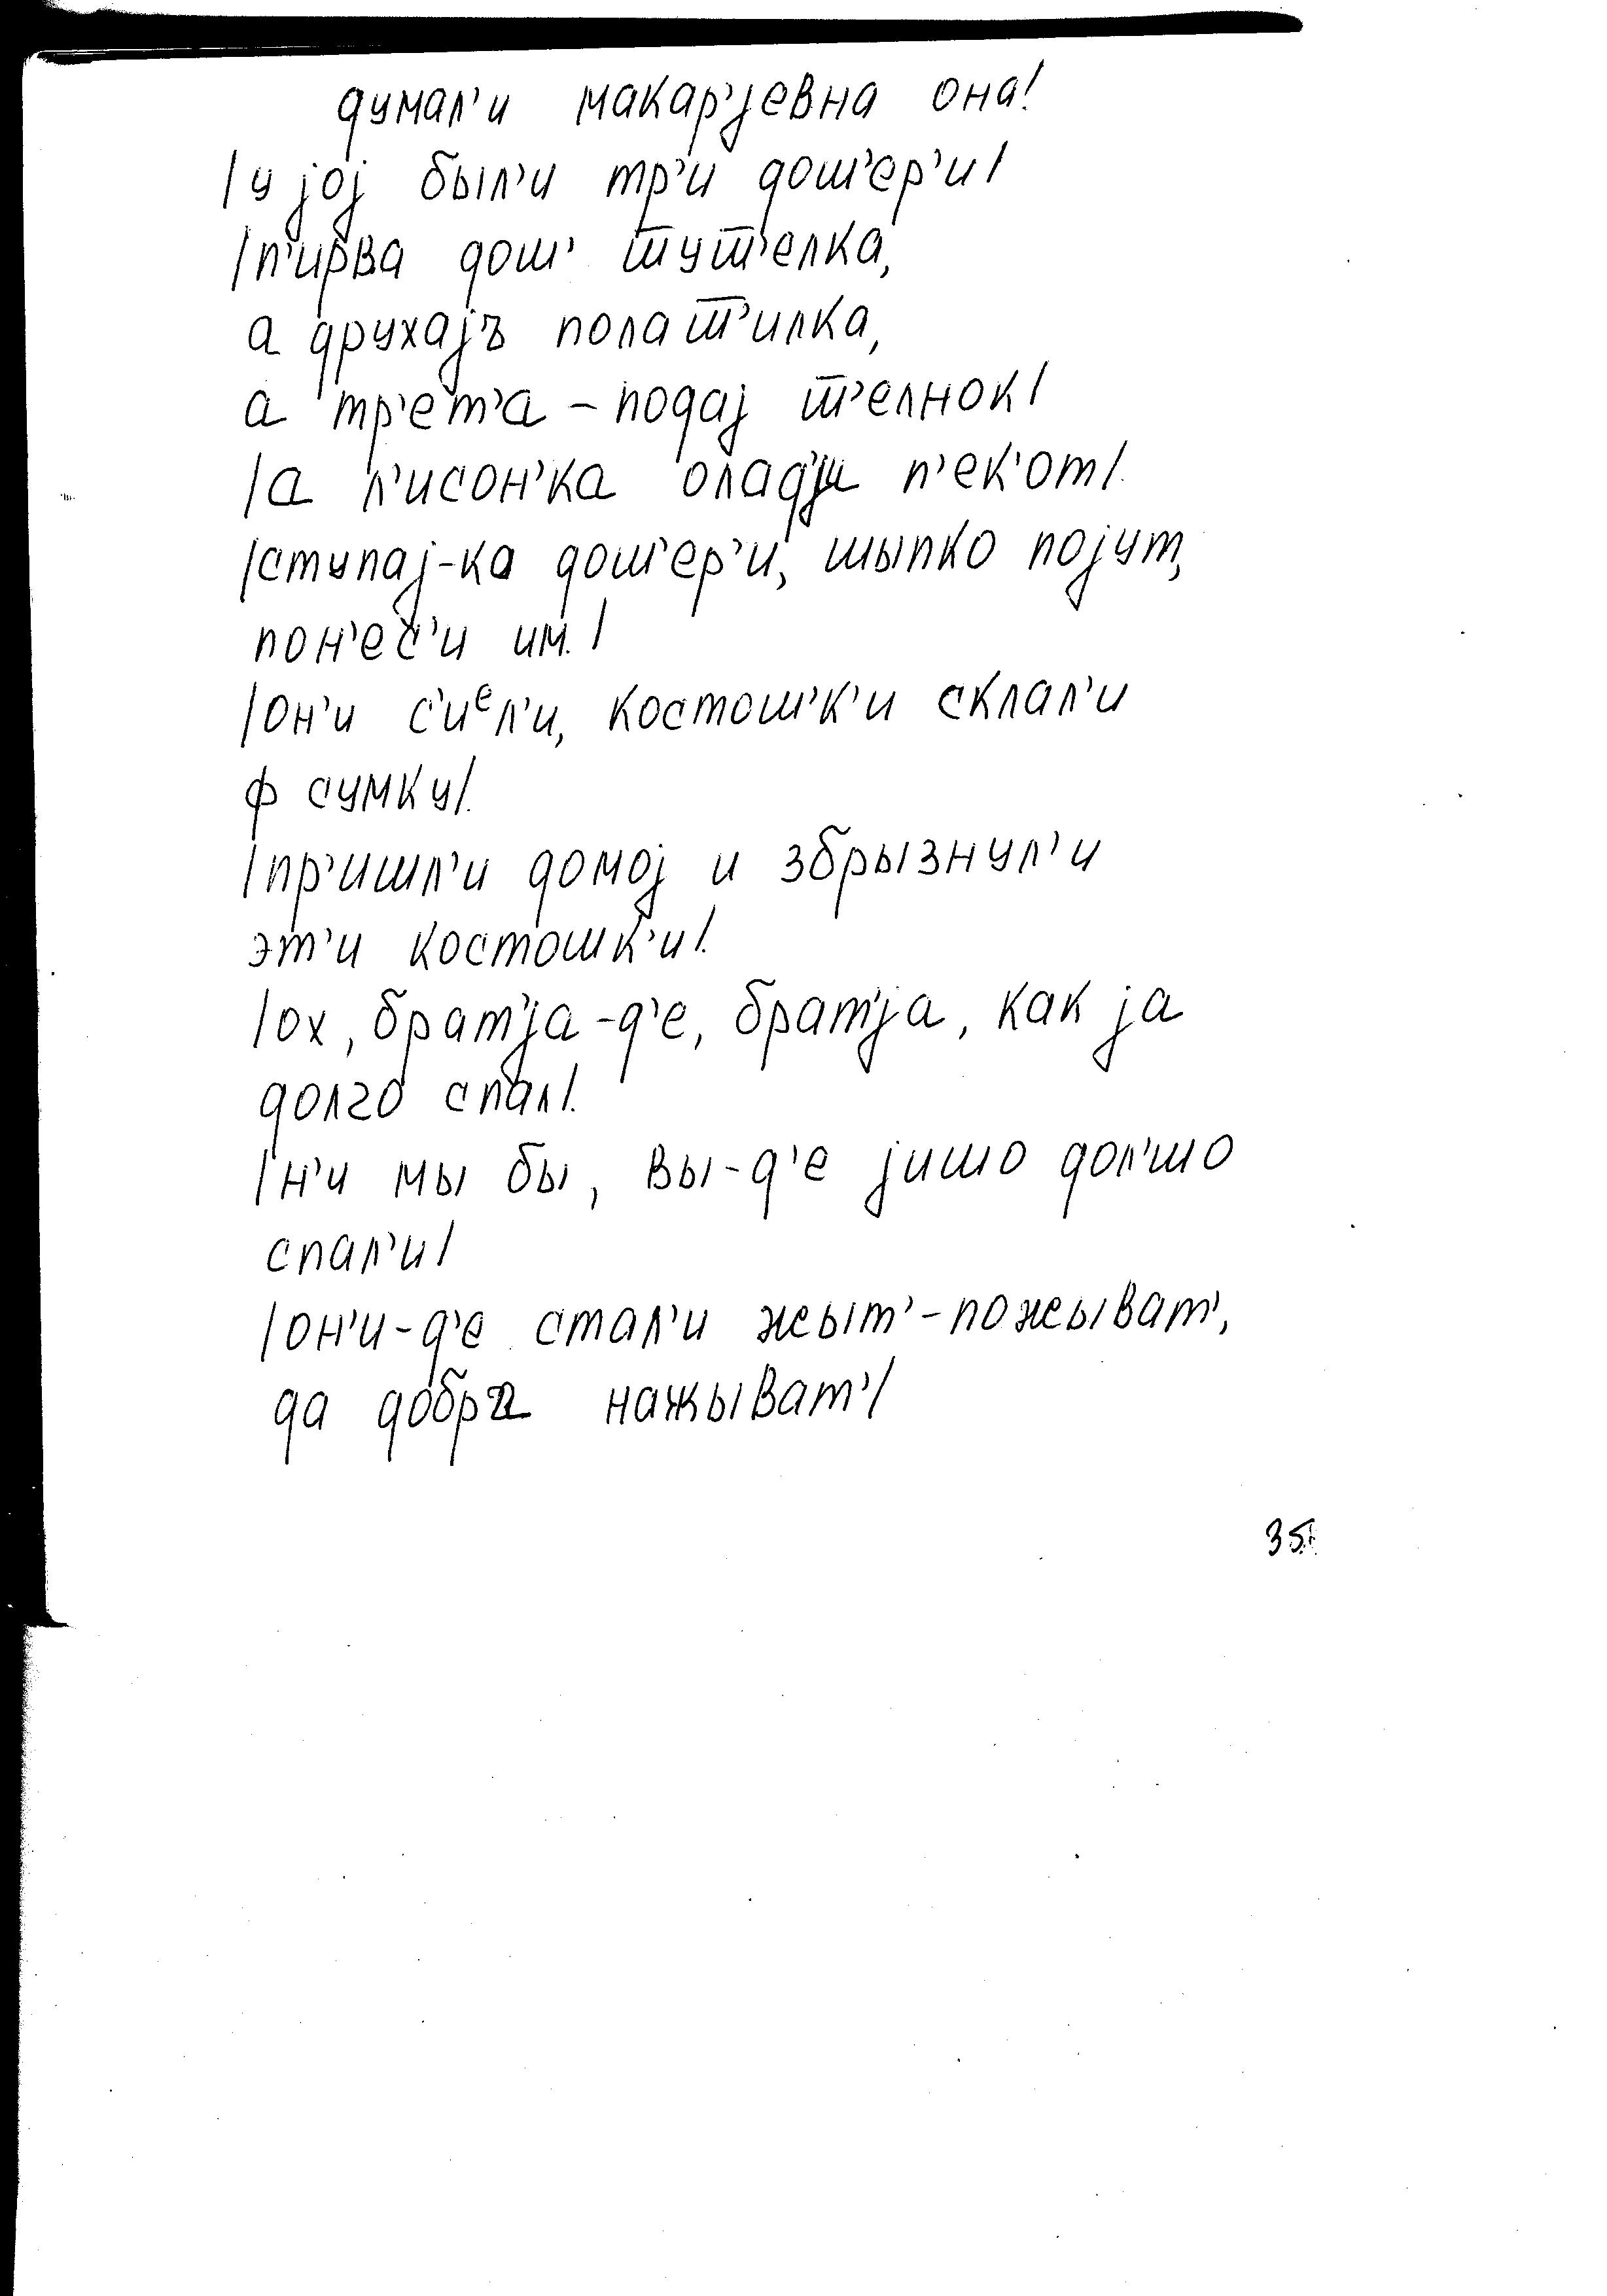 думал'и макар'јевна она!
/у јој был'и тр'и дош'ер'и/
/п'ирва дош' т̅ут̅'елка,
а друхајъ полат̅'илка,
а тр'ет'а – подај т̅'елнок/
/а л'исон'ка олад'ји п'ек'от/.
/ступај-ка дош'ер'и, шыпко појут,
пон'ес'и им./
/он'и с'иᵉл'и, костош'к'и склал'и
ф сумку/.
/пр'ишл'и домој и збрызнул'и
эт'и костошк'и/.
/ох, брат'ја-д'е, брат'ја, как ја
долго спал/.
/н'и мы бы, вы-д'е јишо дол'шо
спал'и/
/он'и-д'е стал'и жыт'-пожыват',
да добра нажыват'/
35.